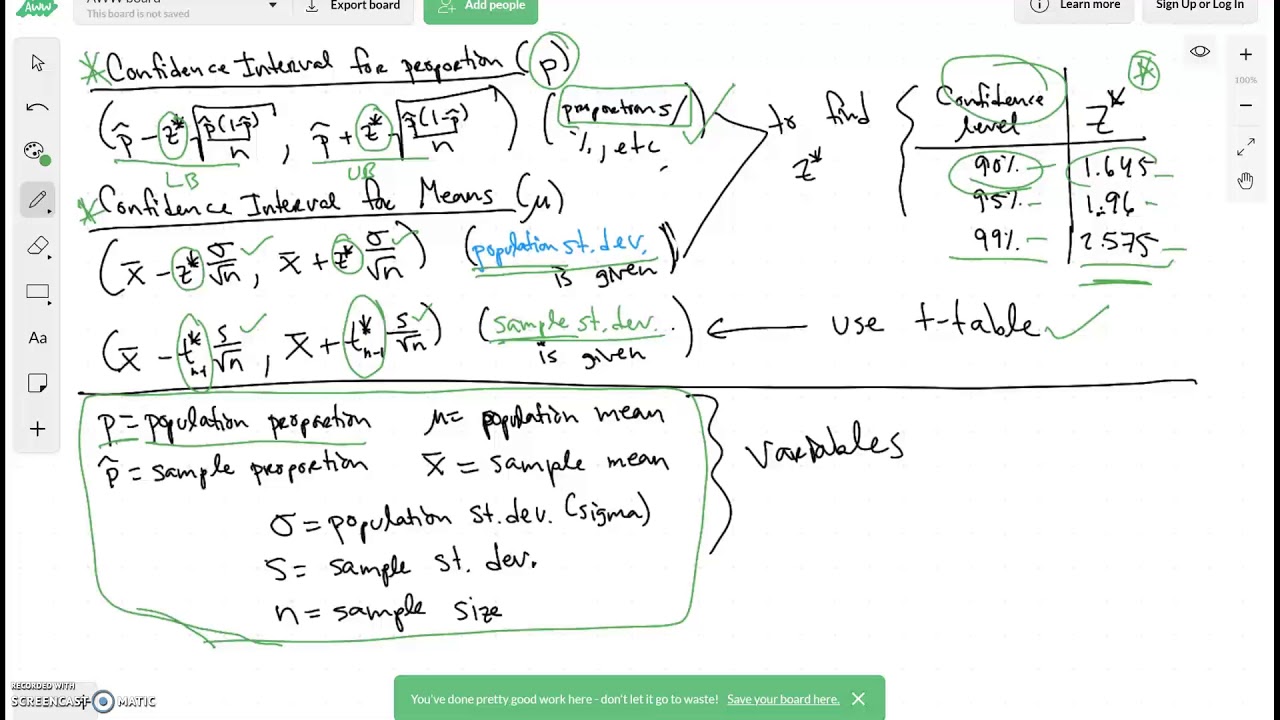 AWW
AWW board
This board is not saved
Export board
Add people
Learn more
Sign Up or Log In
100%
Aa
* Confidence Interval for proportion (p)
(p̂ - z* √(p̂(1-p̂)/n) , p̂ + z* √(p̂(1-p̂)/n)) (proportions/
%, etc)
LB UB
to find
z*
Confidence level Z* *
90% – 1.645 –
95% – 1.96 –
99% – 2.575 –
* Confidence Interval for Means (μ)
(x̄ - z* σ/√n , x̄ + z* σ/√n) (population st. dev.
is given)
(x̄ - t*n-1 s/√n , x̄ + t*n-1 s/√n) (sample st. dev.
is given) ← use t-table
p = population proportion μ = population mean
p̂ = sample proportion x̄ = sample mean
σ = population st. dev. (sigma)
s = sample st. dev.
n = sample size
variables
RECORDED WITH
SCREENCAST MATIC
You've done pretty good work here - don't let it go to waste! Save your board here.